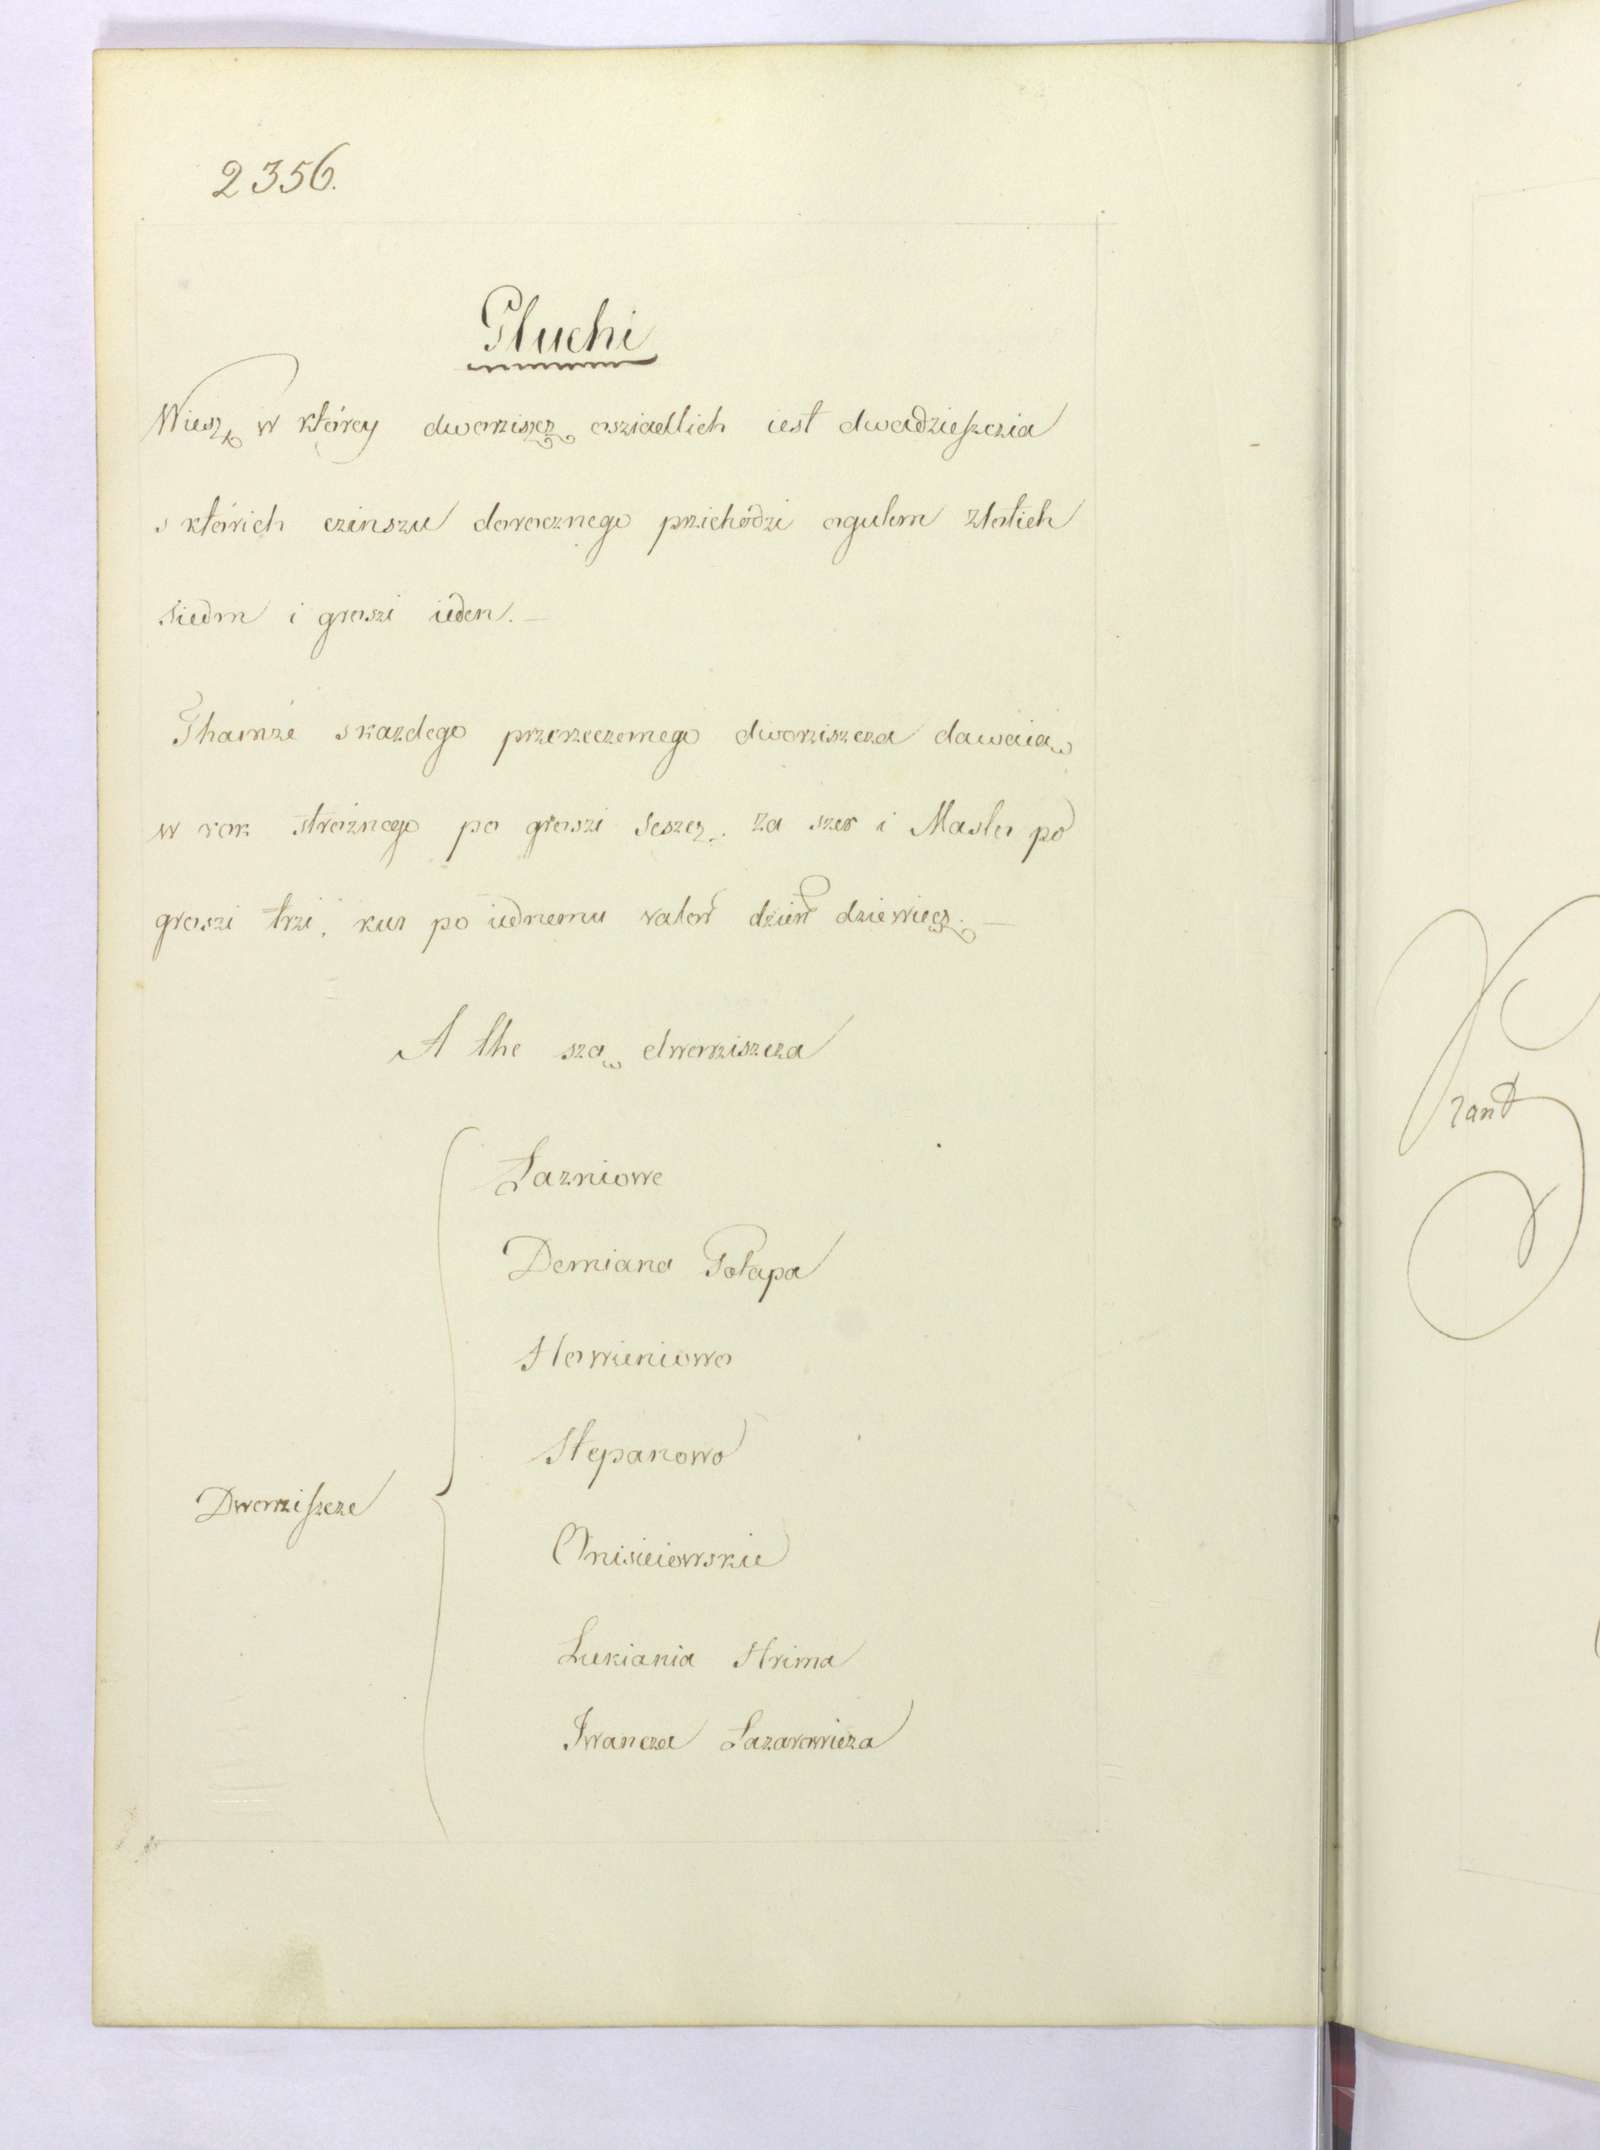 2356.
Gluchi
Wiesz w którey dworziszcz osziadlich iest dwadzieszczia
s których czinszu dorocznego przichodzi ogulem złotich
siedm i groszi ieden. –
Thamże skazdego przerzeczonego dworziszcza dawaią
w rok stróżnego po groszi szescz. za szer i Maslo po
groszi trzi, kur po iednemu
dziewiecz. –
A the szą dworziszcza
Dworziszcze
Łazniowe
Demiana Potapa
Hawieniowo
Stepanowo
Onisieiowskie
Lukiania Hrima
Iwancza Łazarowicza
rant